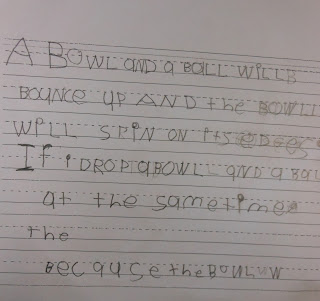 A BOWL AND a BALL WILL B
BOUNCE UP AND the BOWLL
WILL SPIN ON itS EDGES
If i DROP a BOWLL AND a BALL
at the sametime
the
BecausetheBOULUW